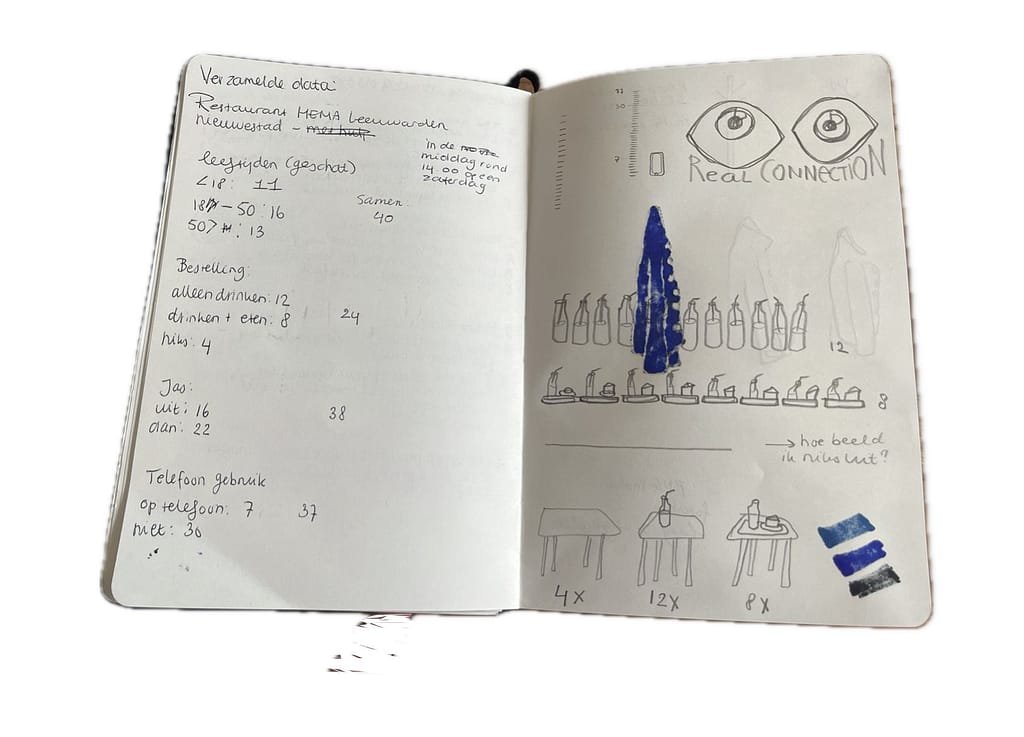 Verzamelde data:
Restaurant HEMA Leeuwarden
nieuwestad –
in de
middag rond
14.00 op een
zaterdag
leeftijden (geschat)
<18: 11
18 – 50: 16
50> : 13
Samen:
40
Bestelling:
alleen drinken: 12
drinken + eten: 8
niks: 4
24
Jas:
uit: 16
aan: 22
38
Telefoon gebruik
op telefoon: 7
niet: 30
37
30
7
Real CONNECTION
12
8
→ hoe beeld
ik niks uit?
4x
12x
8x